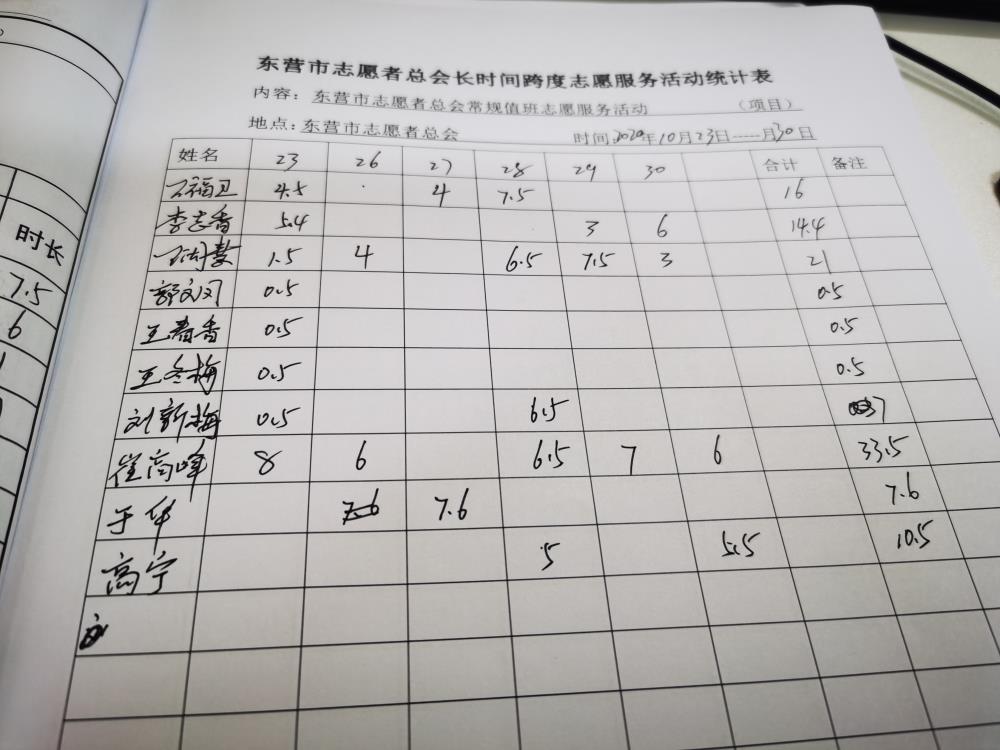 东营市志愿者总会长时间跨度志愿服务活动统计表
内容：东营市志愿者总会常规值班志愿服务活动 （项目）
地点：东营市志愿者总会 时间：2020年10月23日-----月30日
姓名 23 26 27 28 29 30 合计 备注
4.5 4 7.5 16
李志香 5.4 3 6 14.4
1.5 4 6.5 7.5 3 21
郭文 0.5 0.5
王春香 0.5 0.5
王冬梅 0.5 0.5
刘新梅 0.5 6.5 7
崔高峰 8 6 6.5 7 6 33.5
于华 7.6 7.6 7.6
高宁 5 5.5 10.5
时长
7.5
6